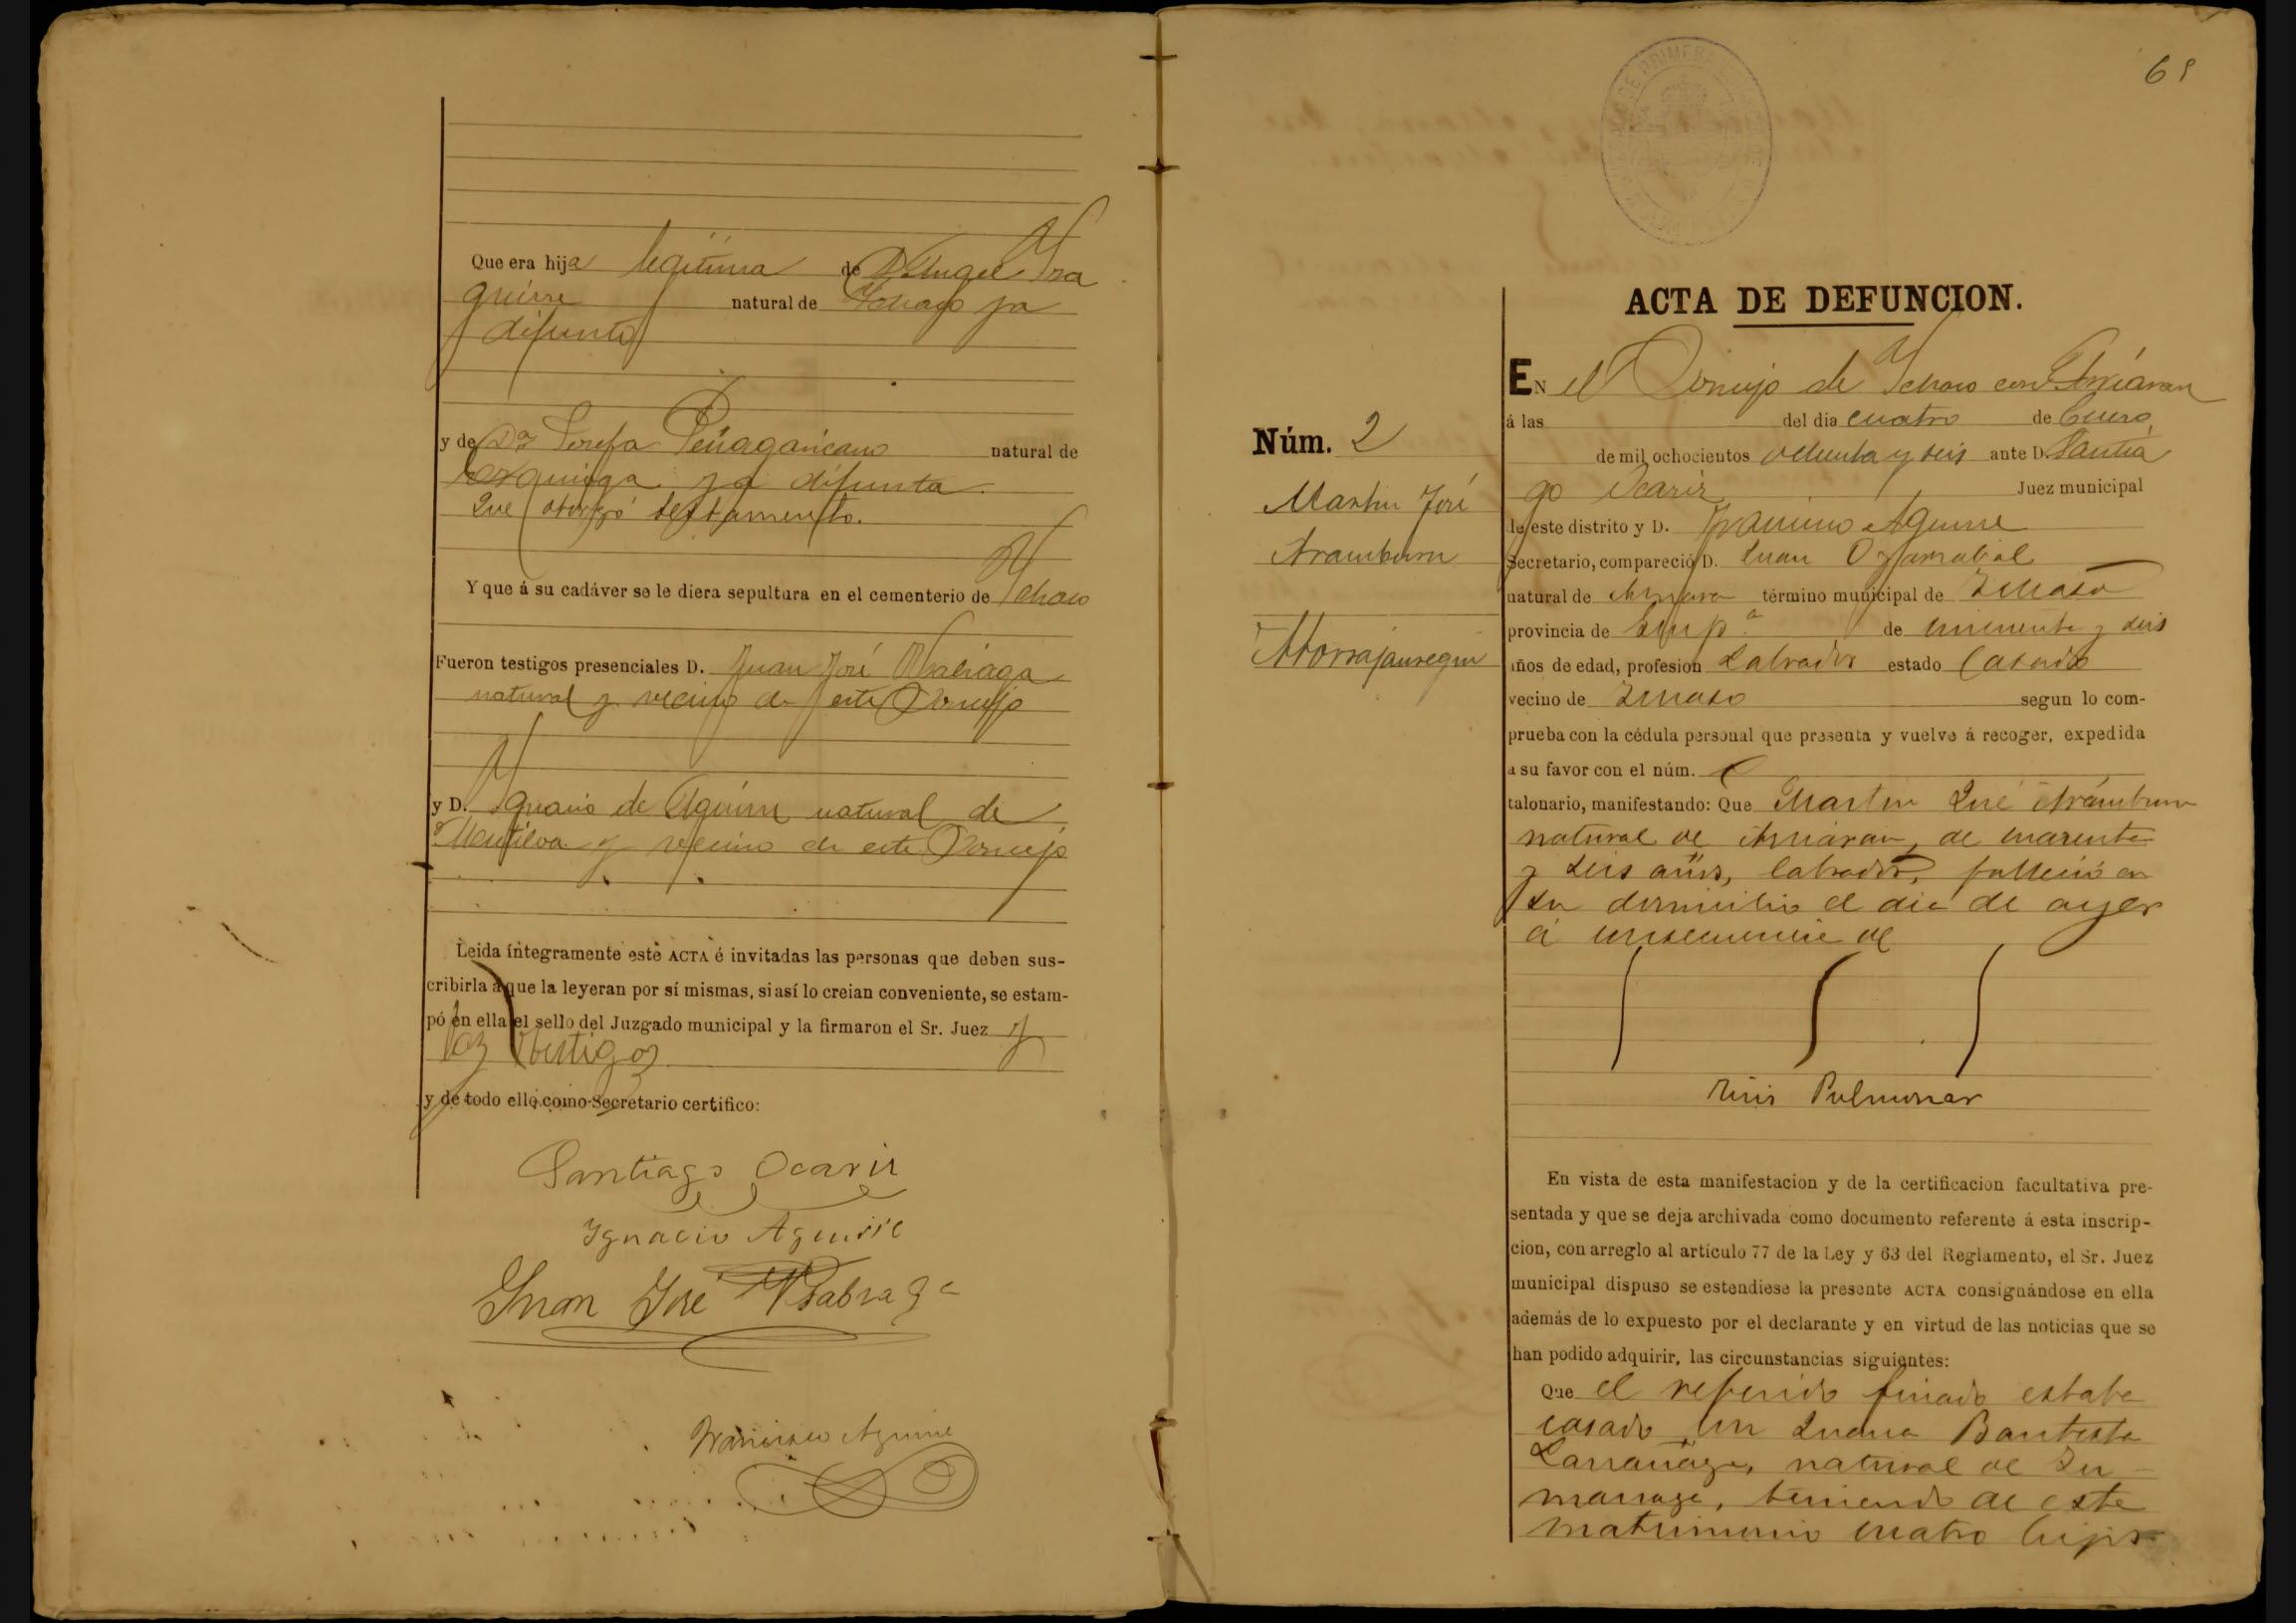 Que era hija legitima de D. Angel Yza
guirre natural de Ychaso ya
difunto
y de Dª Josefa Peñagaricano natural de
Ezquioga ya difunta
Que otorgó testamento.
Y que á su cadáver se le diera sepultura en el cementerio de Ychaso
Fueron testigos presenciales D. Juan José
natural y vecino de este Concejo
y D. Ygnacio de Aguirre natural de
Mutiloa y vecino de este Concejo
Leida íntegramente este ACTA é invitadas las personas que deben sus-
cribirla á que la leyeran por sí mismas, si así lo creian conveniente, se estam-
pó en ella el sello del Juzgado municipal y la firmaron el Sr. Juez y
los testigos
y de todo ello como Secretario certifico:
Santiago Ocariz
Ygnacio Aguirre
Juan José
Francisco Aguirre
ACTA DE DEFUNCION.
EN el Concejo de Ychaso con Arriaran
á las del dia cuatro de Enero
de mil ochocientos ochenta y seis ante D. Santia
go Ocariz Juez municipal
de este distrito y D. Francisco Aguirre
Secretario, compareció D. Juan Oyarzabal
natural de término municipal de Ichaso
provincia de Guipª de cincuenta y seis
años de edad, profesion Labrador estado Casado
vecino de Ichaso segun lo com-
prueba con la cédula personal que presenta y vuelve á recoger, expedida
a su favor con el núm.
talonario, manifestando: Que Martin José Arámburu
natural de Arriaran, de cuarenta
y seis años, labrador, falleció en
su domicilio el dia de ayer
á consecuencia de
Tisis Pulmonar
En vista de esta manifestacion y de la certificacion facultativa pre-
sentada y que se deja archivada como documento referente á esta inscrip-
cion, con arreglo al artículo 77 de la Ley y 63 del Reglamento, el Sr. Juez
municipal dispuso se estendiese la presente ACTA consignándose en ella
además de lo expuesto por el declarante y en virtud de las noticias que se
han podido adquirir, las circunstancias siguientes:
Que el referido finado estaba
casado con Juana Bautista
Larrañaga, natural de Zu
marraga, teniendo de este
matrimonio cuatro hijos
Núm. 2
Martin José
Aramburu
Atorrajauregui